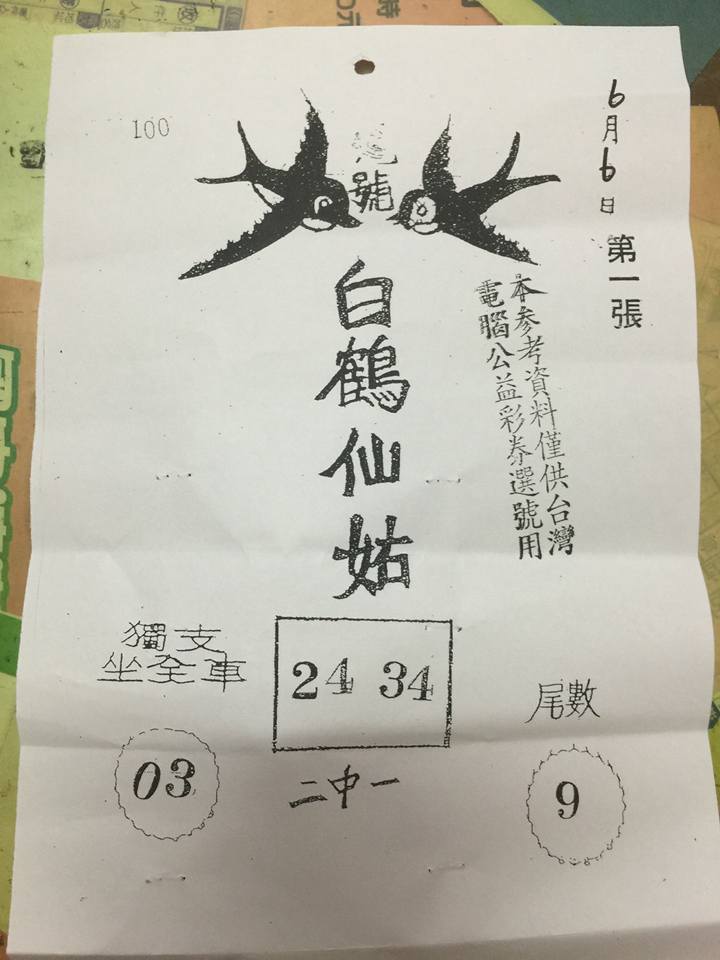 100
6月6日 第一張
號
白鶴仙姑
本参考資料僅供台灣
電腦公益彩券選號用
獨支
坐全車
03
24 34
二中一
尾數
9